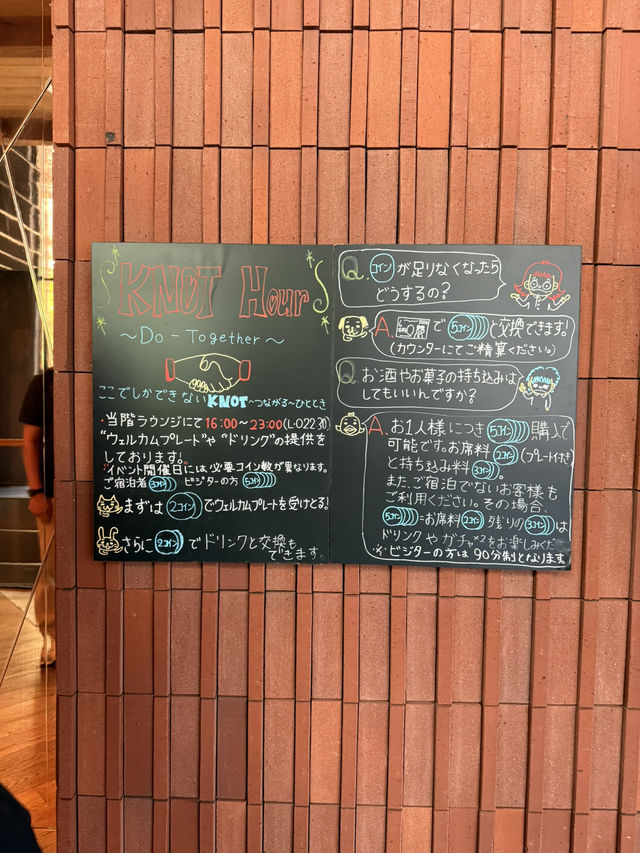 KNOT Hour
~Do-Together~
ここでしかできないKNOT~つながる~ひととき
・当階ラウンジにて16:00~23:00(L.O22:30)
"ウェルカムプレート"や"ドリンク"の提供を
しております!
"イベント開催日には必要コイン数が異なります。
ご宿泊者3コイン ビジターの方5コイン
まずは2コインでウェルカムプレートを受けとる!
さらに2コインでドリンクと交換も
できます。
Q.コインが足りなくなったら
どうするの?
A.で5コインと交換できます!
(カウンターにてご精算ください。)
Q お酒やお菓子の持ち込みは
してもいいんですか?
A.お1人様につき5コイン購入で
可能です。お席料2コイン(プレート付き)
と持ち込み料3コイン。
また、ご宿泊でないお客様も
ご利用ください。その場合、
5コイン=お席料2コイン 残りの3コインは
ドリンクやガチャ*2をお楽しみくだ
※ビジターの方は90分制となります。